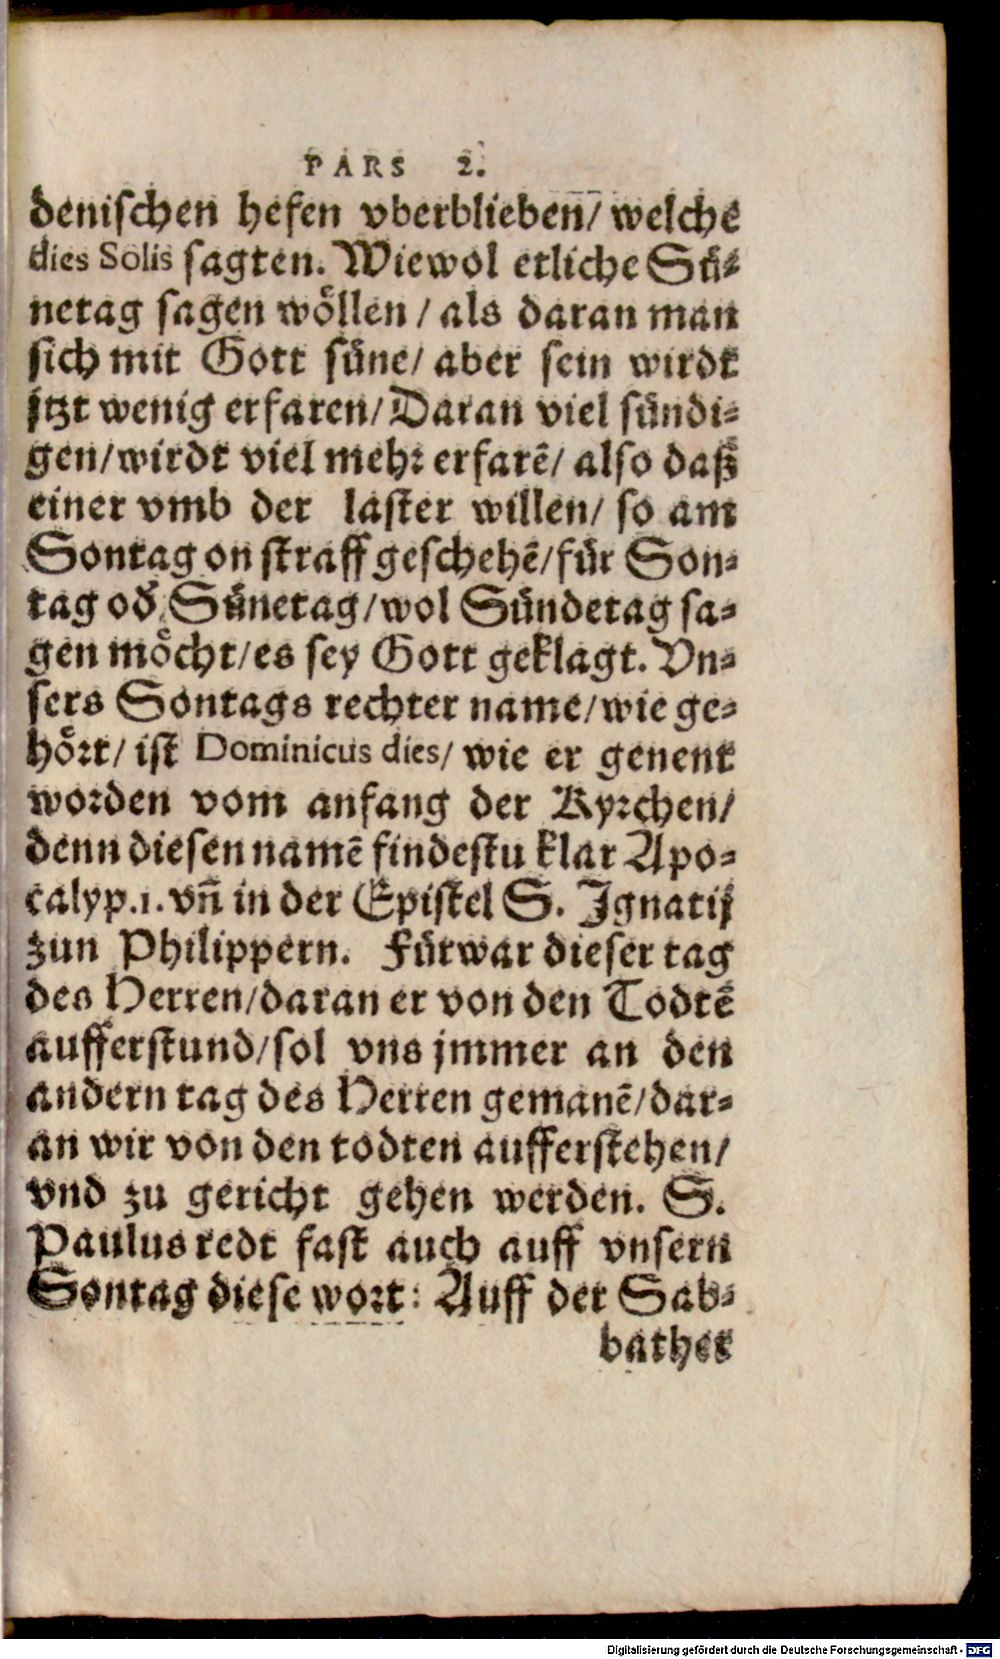 PARS 2.
denischen hefen vberblieben/ welche
dies Solis sagten. Wiewol etliche Sü⸗
netag sagen wöllen / als daran man
sich mit Gott süne/ aber sein wirdt
jtzt wenig erfaren/ Daran viel sündi⸗
gen/ wirdt viel mehr erfarẽ/ also daß
einer vmb der laster willen/ so am
Sontag on straff geschehẽ/ für Son⸗
tag od' Sünetag/ wol Sündetag sa⸗
gen möcht/ es sey Gott geklagt. Vn⸗
sers Sontags rechter name/ wie ge⸗
hört/ ist Dominicus dies/ wie er genent
worden vom anfang der Kyrchen/
denn diesen namẽ findestu klar Apo⸗
calyp.1. vñ in der Epistel S. Ignatij
zun Philippern. Fürwar dieser tag
des Herren/ daran er von den Todtẽ
aufferstund/ sol vns jmmer an den
andern tag des Herren gemanẽ/ dar⸗
an wir von den todten aufferstehen/
vnd zu gericht gehen werden. S.
Paulus redt fast auch auff vnsern
Sontag diese wort: Auff der Sab⸗
bather
Digitalisierung gefördert durch die Deutsche Forschungsgemeinschaft - DFG